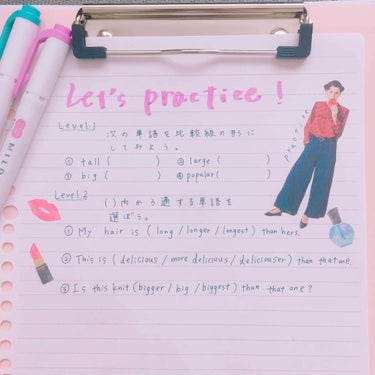 Let's practice!
Level 1 次の単語を比較級の形に
してみよう。
① tall (    ) ② large (    )
③ big (    ) ④ popular (    )
Level 2 ( )内から適する単語を
選ぼう。
① My hair is ( long / longer / longest ) than hers.
② This is ( delicious / more delicious / deliciouser ) than that one.
③ Is this knit (bigger / big / biggest) than that one?
practice
MILD